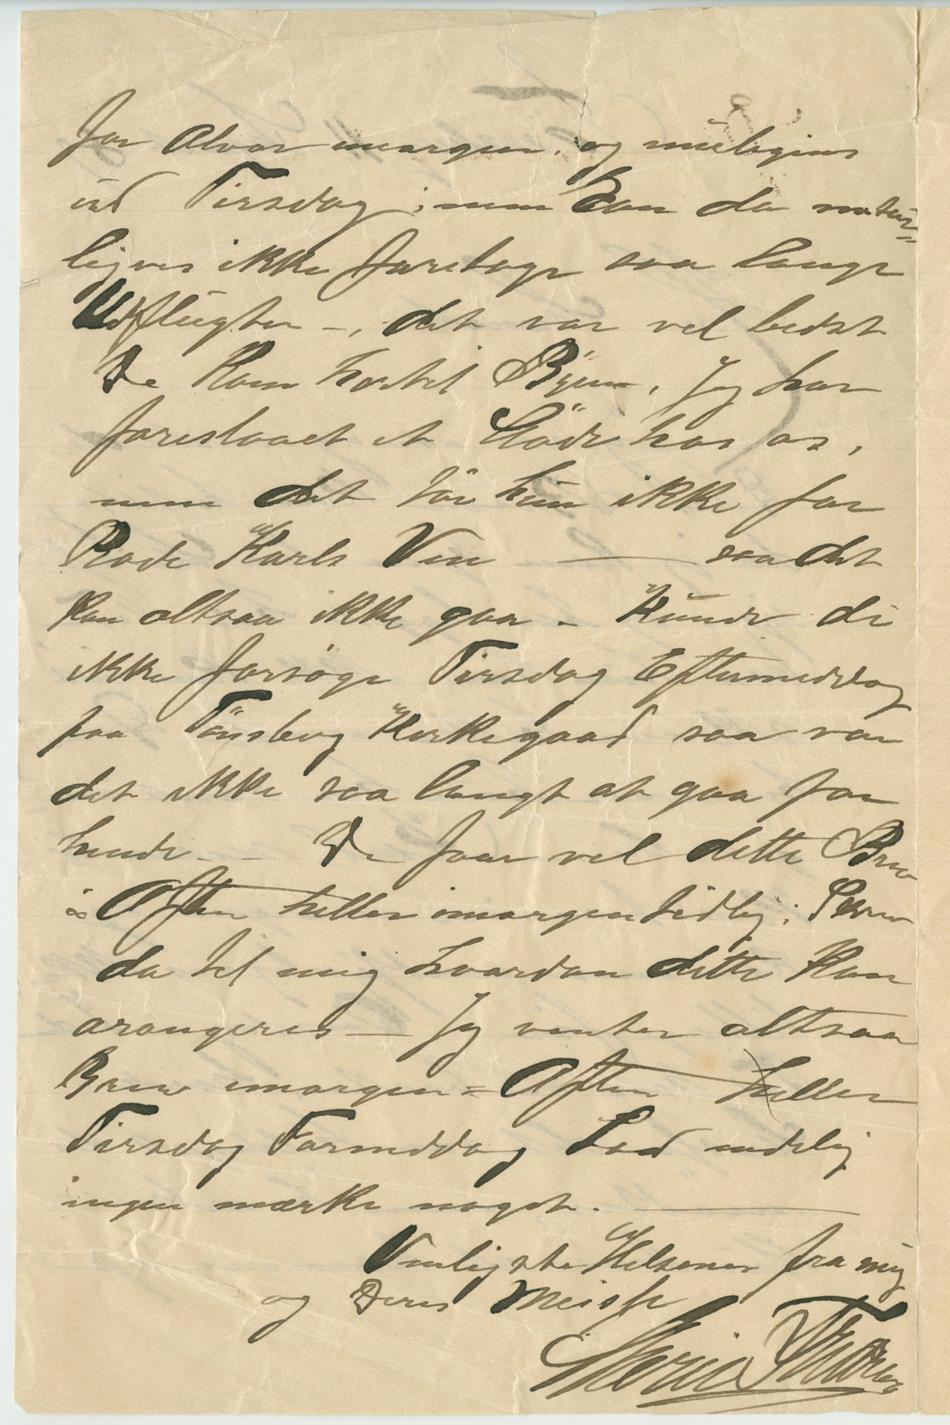 for Alvor imorgen. og muligens
ud Tirsdag; men kan da natur=
ligvis ikke foretage saa lange
Udflugter -, det var vel bedst
De kom hertil Byen. Jeg har
foreslaaet et Möde hos os,
men det tör hun ikke for
Rode Karls Ven — saa det
kan altsaa ikke gaa - Kunde di
ikke forsöge Tirsdag Eftermiddag
paa Tönsberg Kirkegaard saa var
det ikke saa langt at gaa for
hende - De faar vel dette Brev
i Aften heller imorgen tidlig; Skriv
da til mig hvordan dette kan
arangeres — Jeg venter altsaa
Brev imorgen = Aften heller
Tirsdag Formiddag Lad endelig
ingen mærke noget. —
Venligste Hilsener fra mig
og Deres